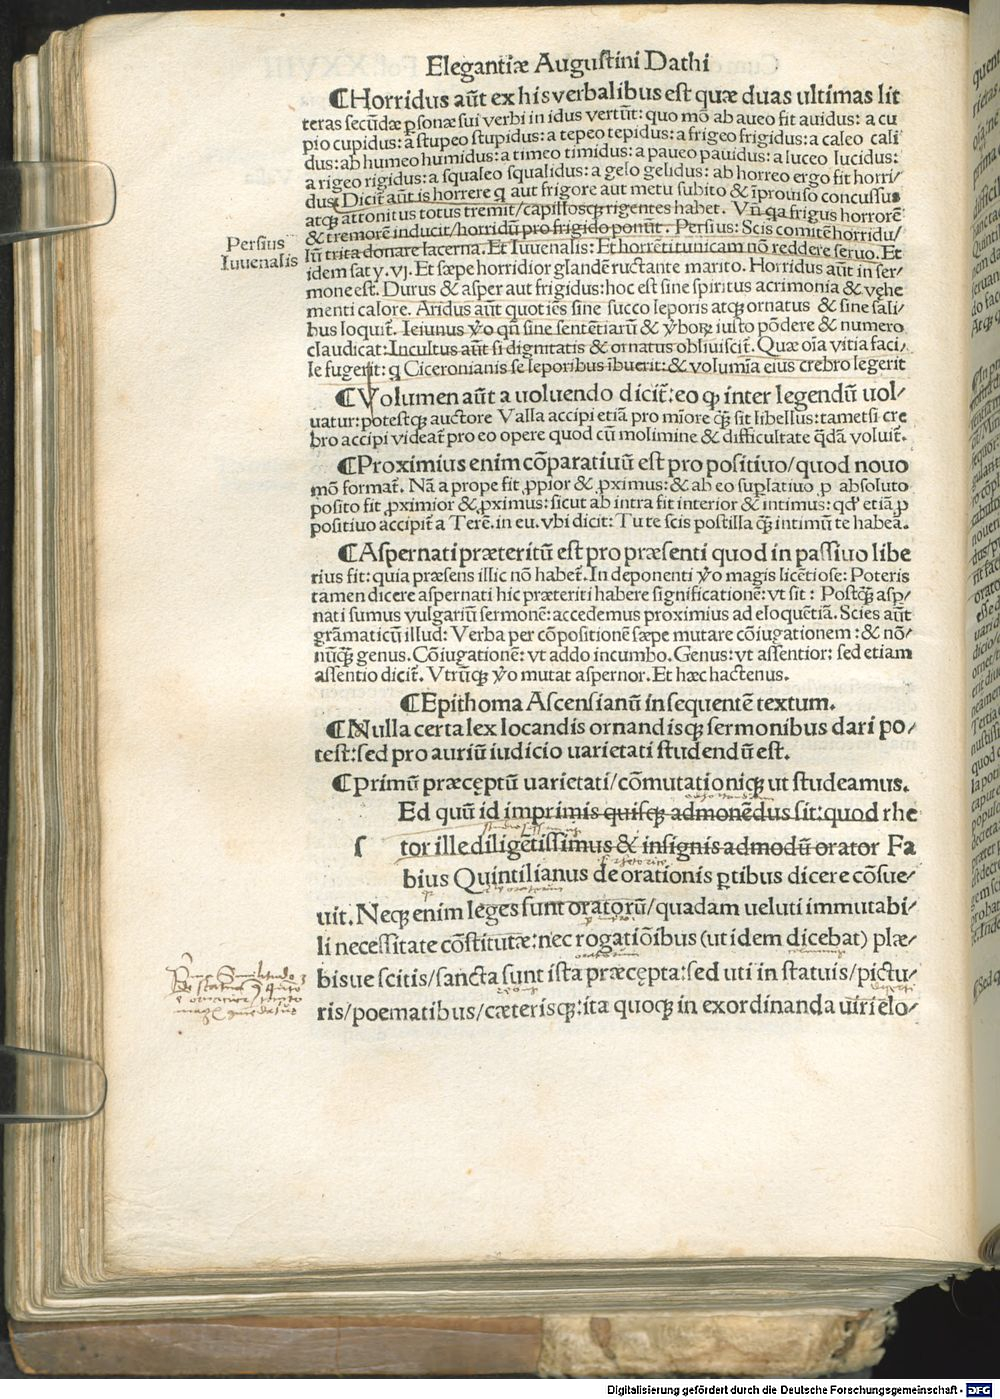 Elegantiæ Augustini Dathi
¶Horridus aūt ex his verbalibus est quæ duas ultimas lit
teras secūdæ ꝑsonæ sui verbi in idus vertūt: quo mō ab aueo fit auidus: a cu
pio cupidus: a stupeo stupidus: a tepeo tepidus: a frigeo frigidus: a caleo cali
dus: ab humeo humidus: a timeo timidus: a paueo pauidus: a luceo lucidus:
a rigeo rigidus: a squaleo squalidus: a gelo gelidus: ab horreo ergo fit horri/
dus. Dicit̄ aūt is horrere q aut frigore aut metu subito & īprouiso concussus
atqꝫ attonitus totus tremit/capillosqꝫ rigentes habet. Vn̄ qa frigus horrorē
& tremorē inducit/horridū pro frigido ponūt. Persius: Scis comitē horridu/
Persius
lū trita donare lacerna. Et Iuuenalis: Et horrēti tunicam nō reddere seruo. Et
Iuuenalis
idem sat y. vj. Et sæpe horridior glandē ructante marito. Horridus aūt in ser/
mone est. Durus & asper aut frigidus: hoc est sine spiritus acrimonia & vęhe
menti calore. Aridus aūt quotiēs sine succo leporis atqꝫ ornatus & sine sali/
bus loquit̄. Ieiunus ỹo qn̄ sine sentētiarū & ỹboꝝ iusto pōdere & numero
claudicat: Incultus aūt si dignitatis & ornatus obliuiscit̄. Quæ oīa vitia faci/
le fugerit: q Ciceronianis se leporibus ibuerit: & volumīa eius crebro legerit
¶Volumen aūt a uoluendo dicit̄: eo qꝫ inter legendū uol/
uatur: potestqꝫ auctore Valla accipi etiā pro mīore qꝫ̄ sit libellus: tametsi cre
bro accipi videat̄ pro eo opere quod cū molimine & difficultate qdā voluit̄.
¶Proximius enim cōparatiuū est pro positiuo/quod nouo
mō format̄. Nā a prope fit ꝓpior & ꝓximus: & ab eo suꝑlatiuo ꝓ absoluto
posito fit ꝓximior & ꝓximus: sicut ab intra fit interior & intimus: qd' etiā ꝓ
positiuo accipit̄ a Terē. in eu. vbi dicit: Tu te scis postilla qꝫ̄ intimū te habeā.
¶Aspernati præteritū est pro præsenti quod in passiuo libe
rius fit: quia præsens illic nō habet̄. In deponenti ỹo magis licētiose: Poteris
tamen dicere aspernati hic præteriti habere significationē: vt sit: Postqꝫ̄ asp/
nati sumus vulgariū sermonē: accedemus proximius ad eloquētiā. Scies aūt
grāmaticū illud: Verba per cōpositionē sæpe mutare cōiugationem: & nō/
nūqꝫ̄ genus. Cōiugationē: vt addo incumbo. Genus: vt assentior: sed etiam
assentio dicit̄. Vtrūqꝫ ỹo mutat aspernor. Et hæc hactenus.
¶Epithoma Ascensianū in sequentē textum.
¶Nulla certa lex locandis ornandisqꝫ sermonibus dari po/
test: sed pro auriū iudicio uarietati studendū est.
¶Primū præcęptū uarietati/cōmutationiqꝫ ut studeamus.
Ed quū id imprimis quisqꝫ admonēdus sit: quod rhe
ſ tor ille diligētissimus & insignis admodū orator Fa
bius Quintilianus de orationis ꝑtibus dicere cōsue/
uit. Neqꝫ enim leges sunt oratorū/quadam ueluti immutabi/
li necessitate cōstitutæ: nec rogatiōibus (ut idem dicebat) plæ/
bisue scitis/sancta sunt ista præcępta: sed uti in statuis/pictu/
ris/poematibus/cæterisqꝫ: ita quoqꝫ in exordinanda uiri elo/
Digitalisierung gefördert durch die Deutsche Forschungsgemeinschaft - DFG